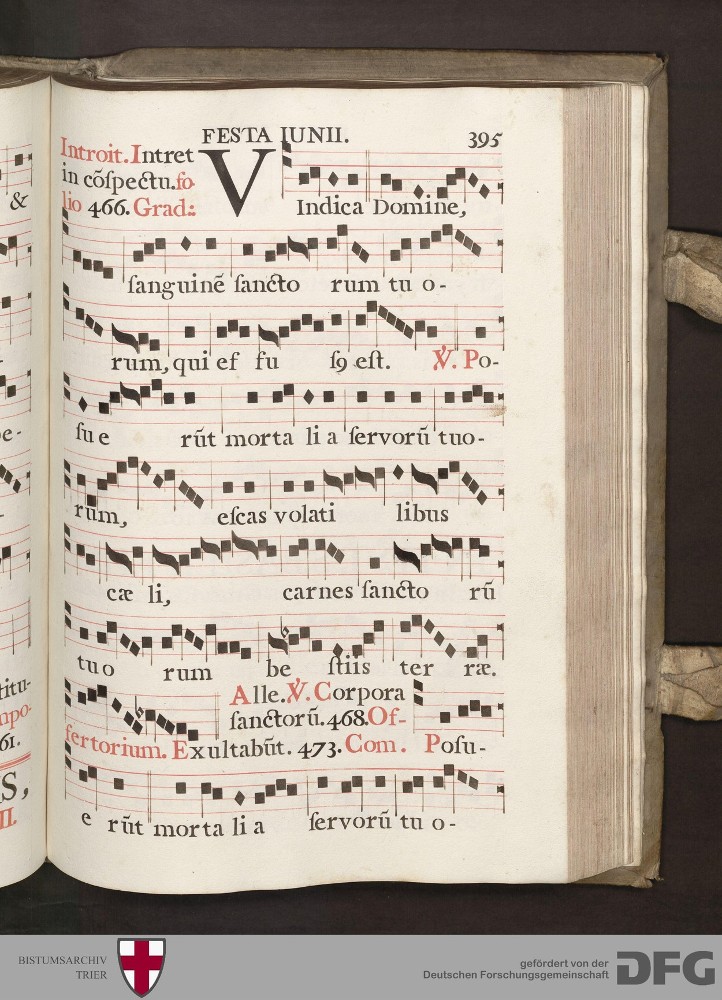 FESTA IUNII. 395
Introit. Intret
in cõſpectu. fo-
lio 466. Grad.:
VIndica Domine,
ſanguinẽ ſancto rum tu o-
rum, qui ef fu ſꝯ eſt. ℣. Po-
ſu e rũt morta li a ſervorũ tuo-
rum, eſcas volati libus
cæ li, carnes ſancto rũ
tuo rum be ſtiis ter ræ.
Alle. ℣. Corpora
ſanctorũ. 468. Of-
fertorium. Exultabũt. 473. Com. Poſu-
e rũt morta li a ſervorũ tu o-
&
-
be-
-
titu-
mpo-
61.
S,
II.
BISTUMSARCHIV
TRIER
gefördert von der
Deutschen Forschungsgemeinschaft
DFG